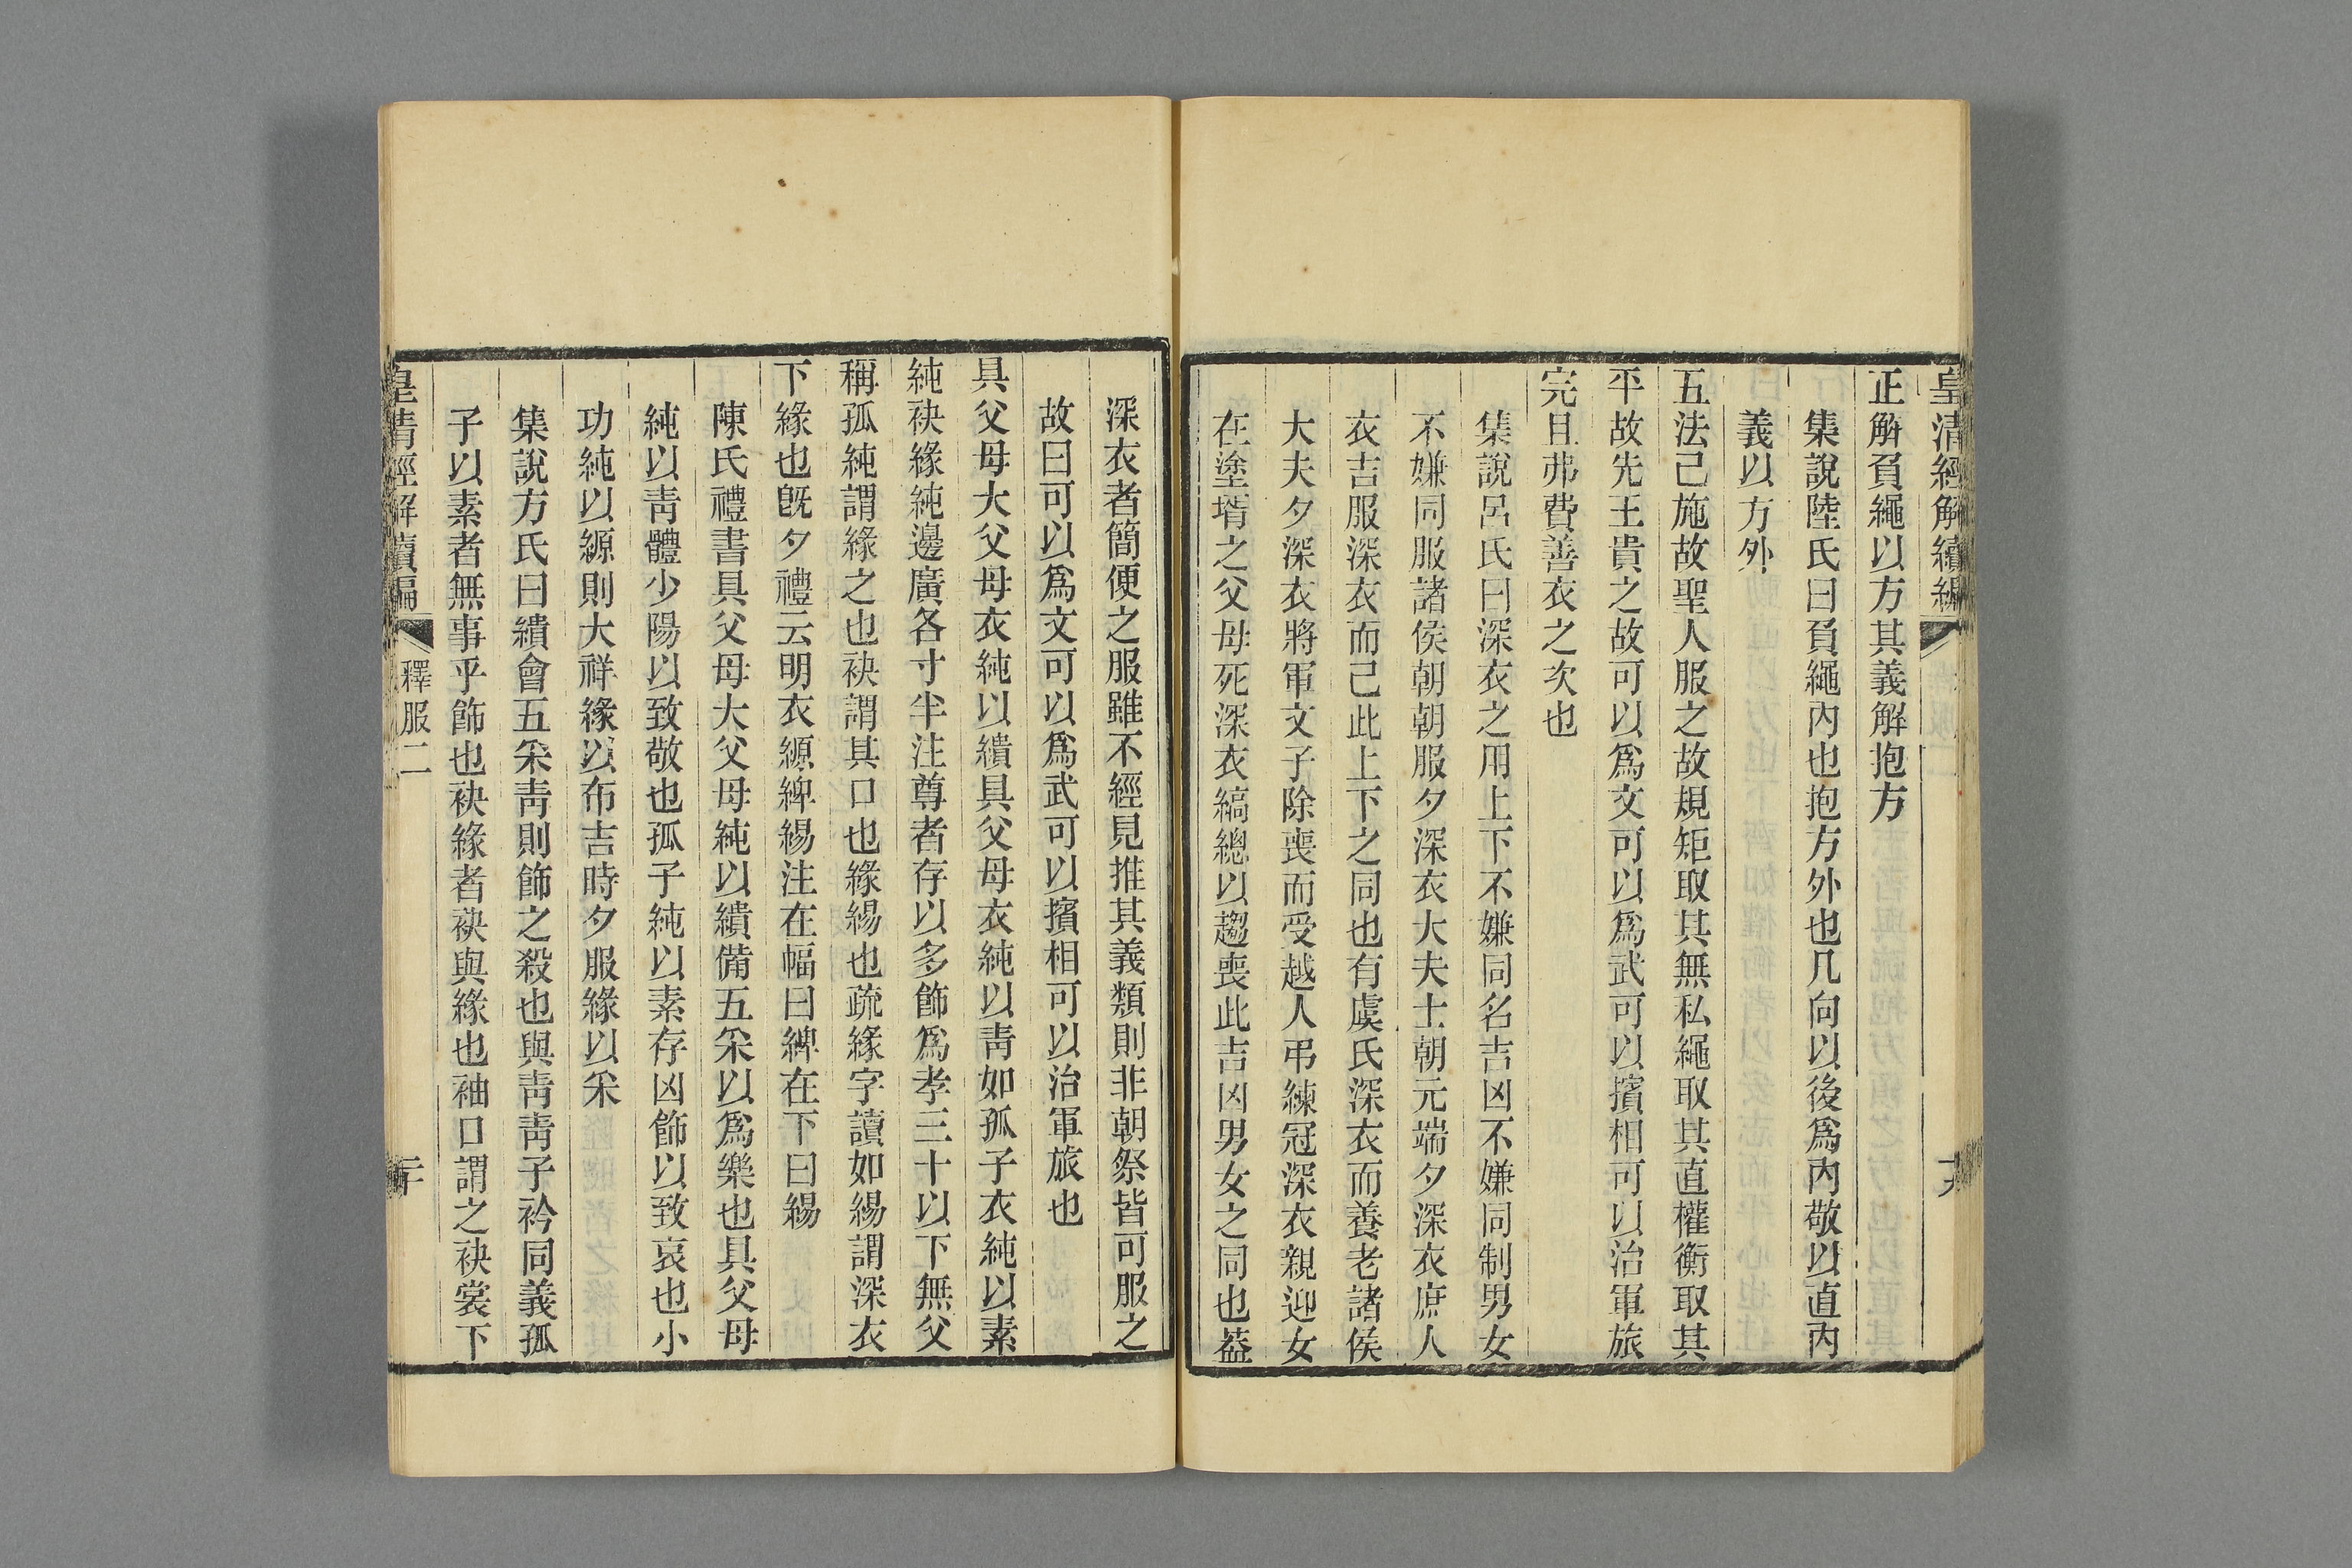 皇清經解續編
正解負繩以方其義解抱方
集說陸氏曰負繩內也抱方外也凡向以後爲內敬以直內
義以方外
五法己施故聖人服之故規矩取其無私繩取其直權衡取其
平故先王貴之故可以爲文可以爲武可以擯相可以治軍旅
完且弗費善衣之次也
集說呂氏曰深衣之用上下不嫌同名吉凶不嫌同制男女
不嫌同服諸侯朝朝服夕深衣大夫士朝元端夕深衣庶人
衣吉服深衣而己此上下之同也有虞氏深衣而養老諸侯
大夫夕深衣將軍文子除喪而受越人弔練冠深衣親迎女
在塗壻之父母死深衣縞總以趨喪此吉凶男女之同也葢
深衣者簡便之服雖不經見推其義類則非朝祭皆可服之
故曰可以爲文可以爲武可以擯相可以治軍旅也
具父母大父母衣純以繢具父母衣純以靑如孤子衣純以素
純袂緣純邊廣各寸半注尊者存以多飾爲孝三十以下無父
稱孤純謂緣之也袂謂其口也緣緆也疏緣字讀如緆謂深衣
下緣也旣夕禮云明衣縓綼緆注在幅曰綼在下曰緆
陳氏禮書具父母大父母純以繢備五采以爲樂也具父母
純以靑體少陽以致敬也孤子純以素存凶飾以致哀也小
功純以縓則大祥緣以布吉時夕服緣以采
集說方氏曰繢會五采靑則飾之殺也與靑靑子衿同義孤
子以素者無事乎飾也袂緣者袂與緣也袖口謂之袂裳下
皇清經解續編
釋服二
二十